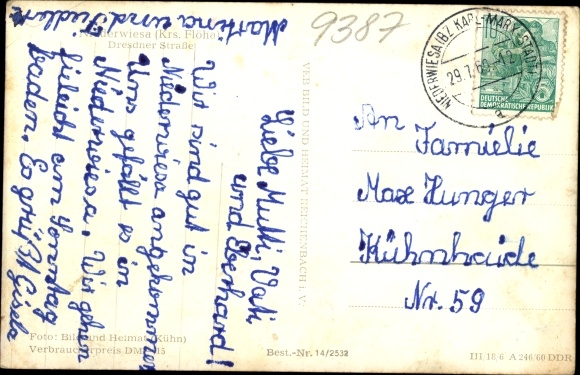 Niederwiesa (Krs. Flöha)
Dresdner Straße
9387
Liebe Mutti, Vati
und Eberhard!
Wir sind gut in
Niederwiesa angekommen
Uns gefällt es in
Niederwiesa. Wir gehen
fieleicht am Sonntag
baden. Es grüßt Gisela
Martina und
Foto: Bild und Heimat (Kühn)
Verbraucherpreis DM
VEB BILD UND HEIMAT REICHENBACH I. V.
Best.-Nr. 14/2532
NIEDERWIESA (BZ. KARL-MARX-STADT)
29.7.60
DEUTSCHE
DEMOKRATISCHE REPUBLIK
An
Famielie
Max Hunger
Kühnheide
Nr. 59
III 18/6 A 240/60 DDR